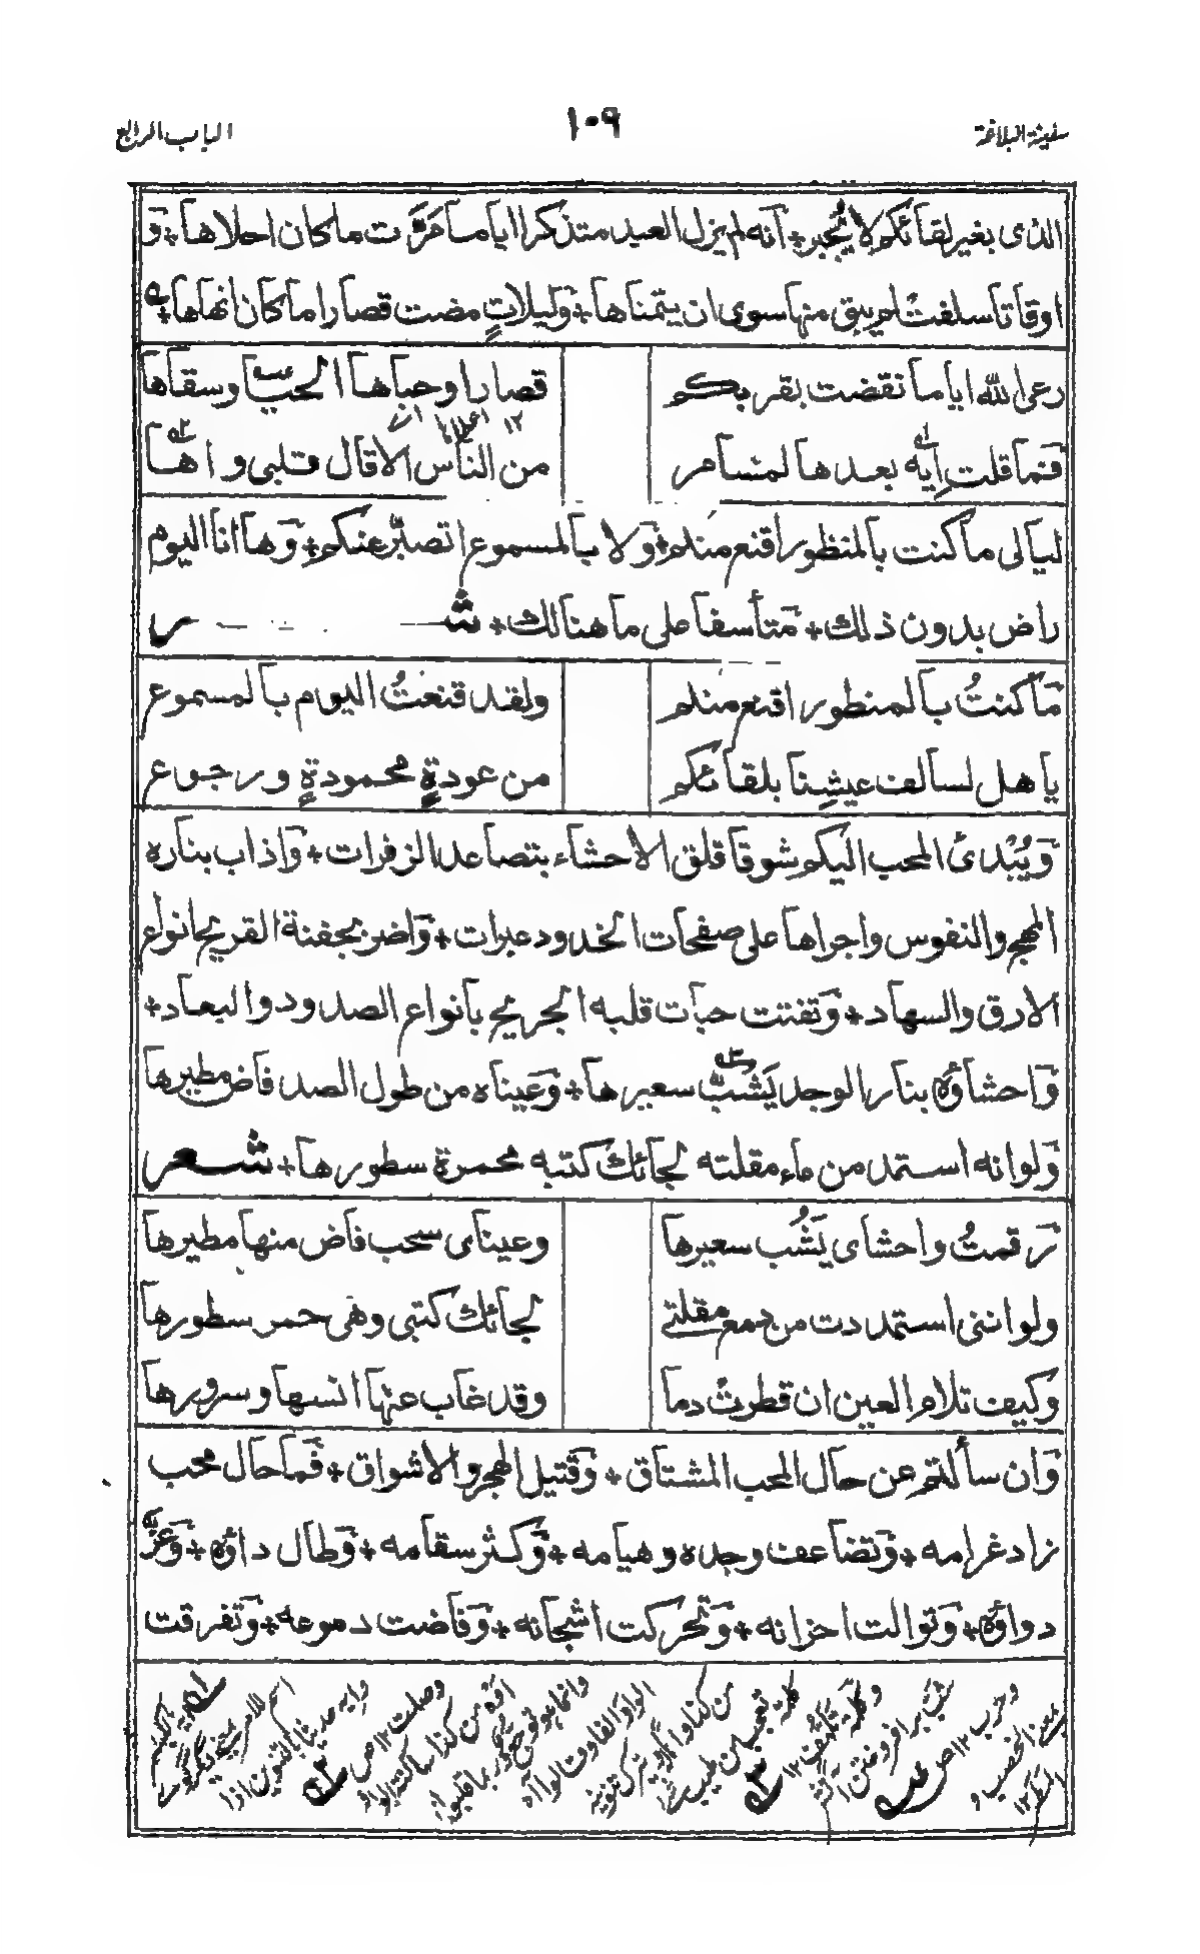 سفينة البلاغة ١٠٩ الباب الرابع
الذى بغير لقائكم لا يُجبر + اَنه لم يزل العبد متذكرا اياما مَرَّت ما كان احلاها + وَ
اوقاتا سلفتْ لم يبق منها سوى ان يتمناها + وَليلاتٍ مضت قصارا ما كان انهاها +
رعى الله اياما تقضت بقربكم قصارا وحياها الحيا وسقاها
فما قلتِ اِيه بعدها لمسامر من الناس الا قال قلبى واها
ليالى ما كنت بالمنظور اقنع منكم + وَلا بالمسموع اتصبّر عنكم + وَها انا اليوم
راض بدون ذلك + مَتأسفا على ما هنالك + شعر
مَا كنتُ بالمنظور اقنع منكم ولقد قنعتُ اليوم بالمسموع
يا هل لسالف عيشِنا بلقائكم من عودةٍ محمودةٍ ورجوع
وَيُبْدىُ المحب اليكم شوقا قلق الاحشاء بتصاعد الزفرات + وَاذاب بناره
المهج والنفوس واجراها على صفحات الخدود عبرات + وَاضر بجفنة القريح انواع
الارق والسهاد + وَتفتت حبات قلبه الجريح بانواع الصدود والبعاد +
وَاحشاؤه بنار الوجد يَشُبّ سعيرها + وَعيناه من طول الصد فاض مطيرها
وَلوانه استمد من ماء مقلته لجائك كتبه محمرة سطورها + شعر
رَقمتُ واحشاى يَشُب سعيرها وعيناى سحب فاض منها مطيرها
ولواننى استمددت من دمع مقلتى لجائك كتبى وهى حمر سطورها
وكيف تلام العين ان قطرتْ دما وقد غاب عنها انسها وسرورها
وَان سألتم عن حال المحب المشتاق + وَقتيل الهجر والاشواق + فَما حال محب
زاد غرامه + وَتضاعف وجده وهيامه + وَكثر سقامه + وَطال داؤه + وَعزَّ
دواؤه + وَتوالت احزانه + وَتحركت اشجانه + وَفاضت دموعه + وَتفرقت